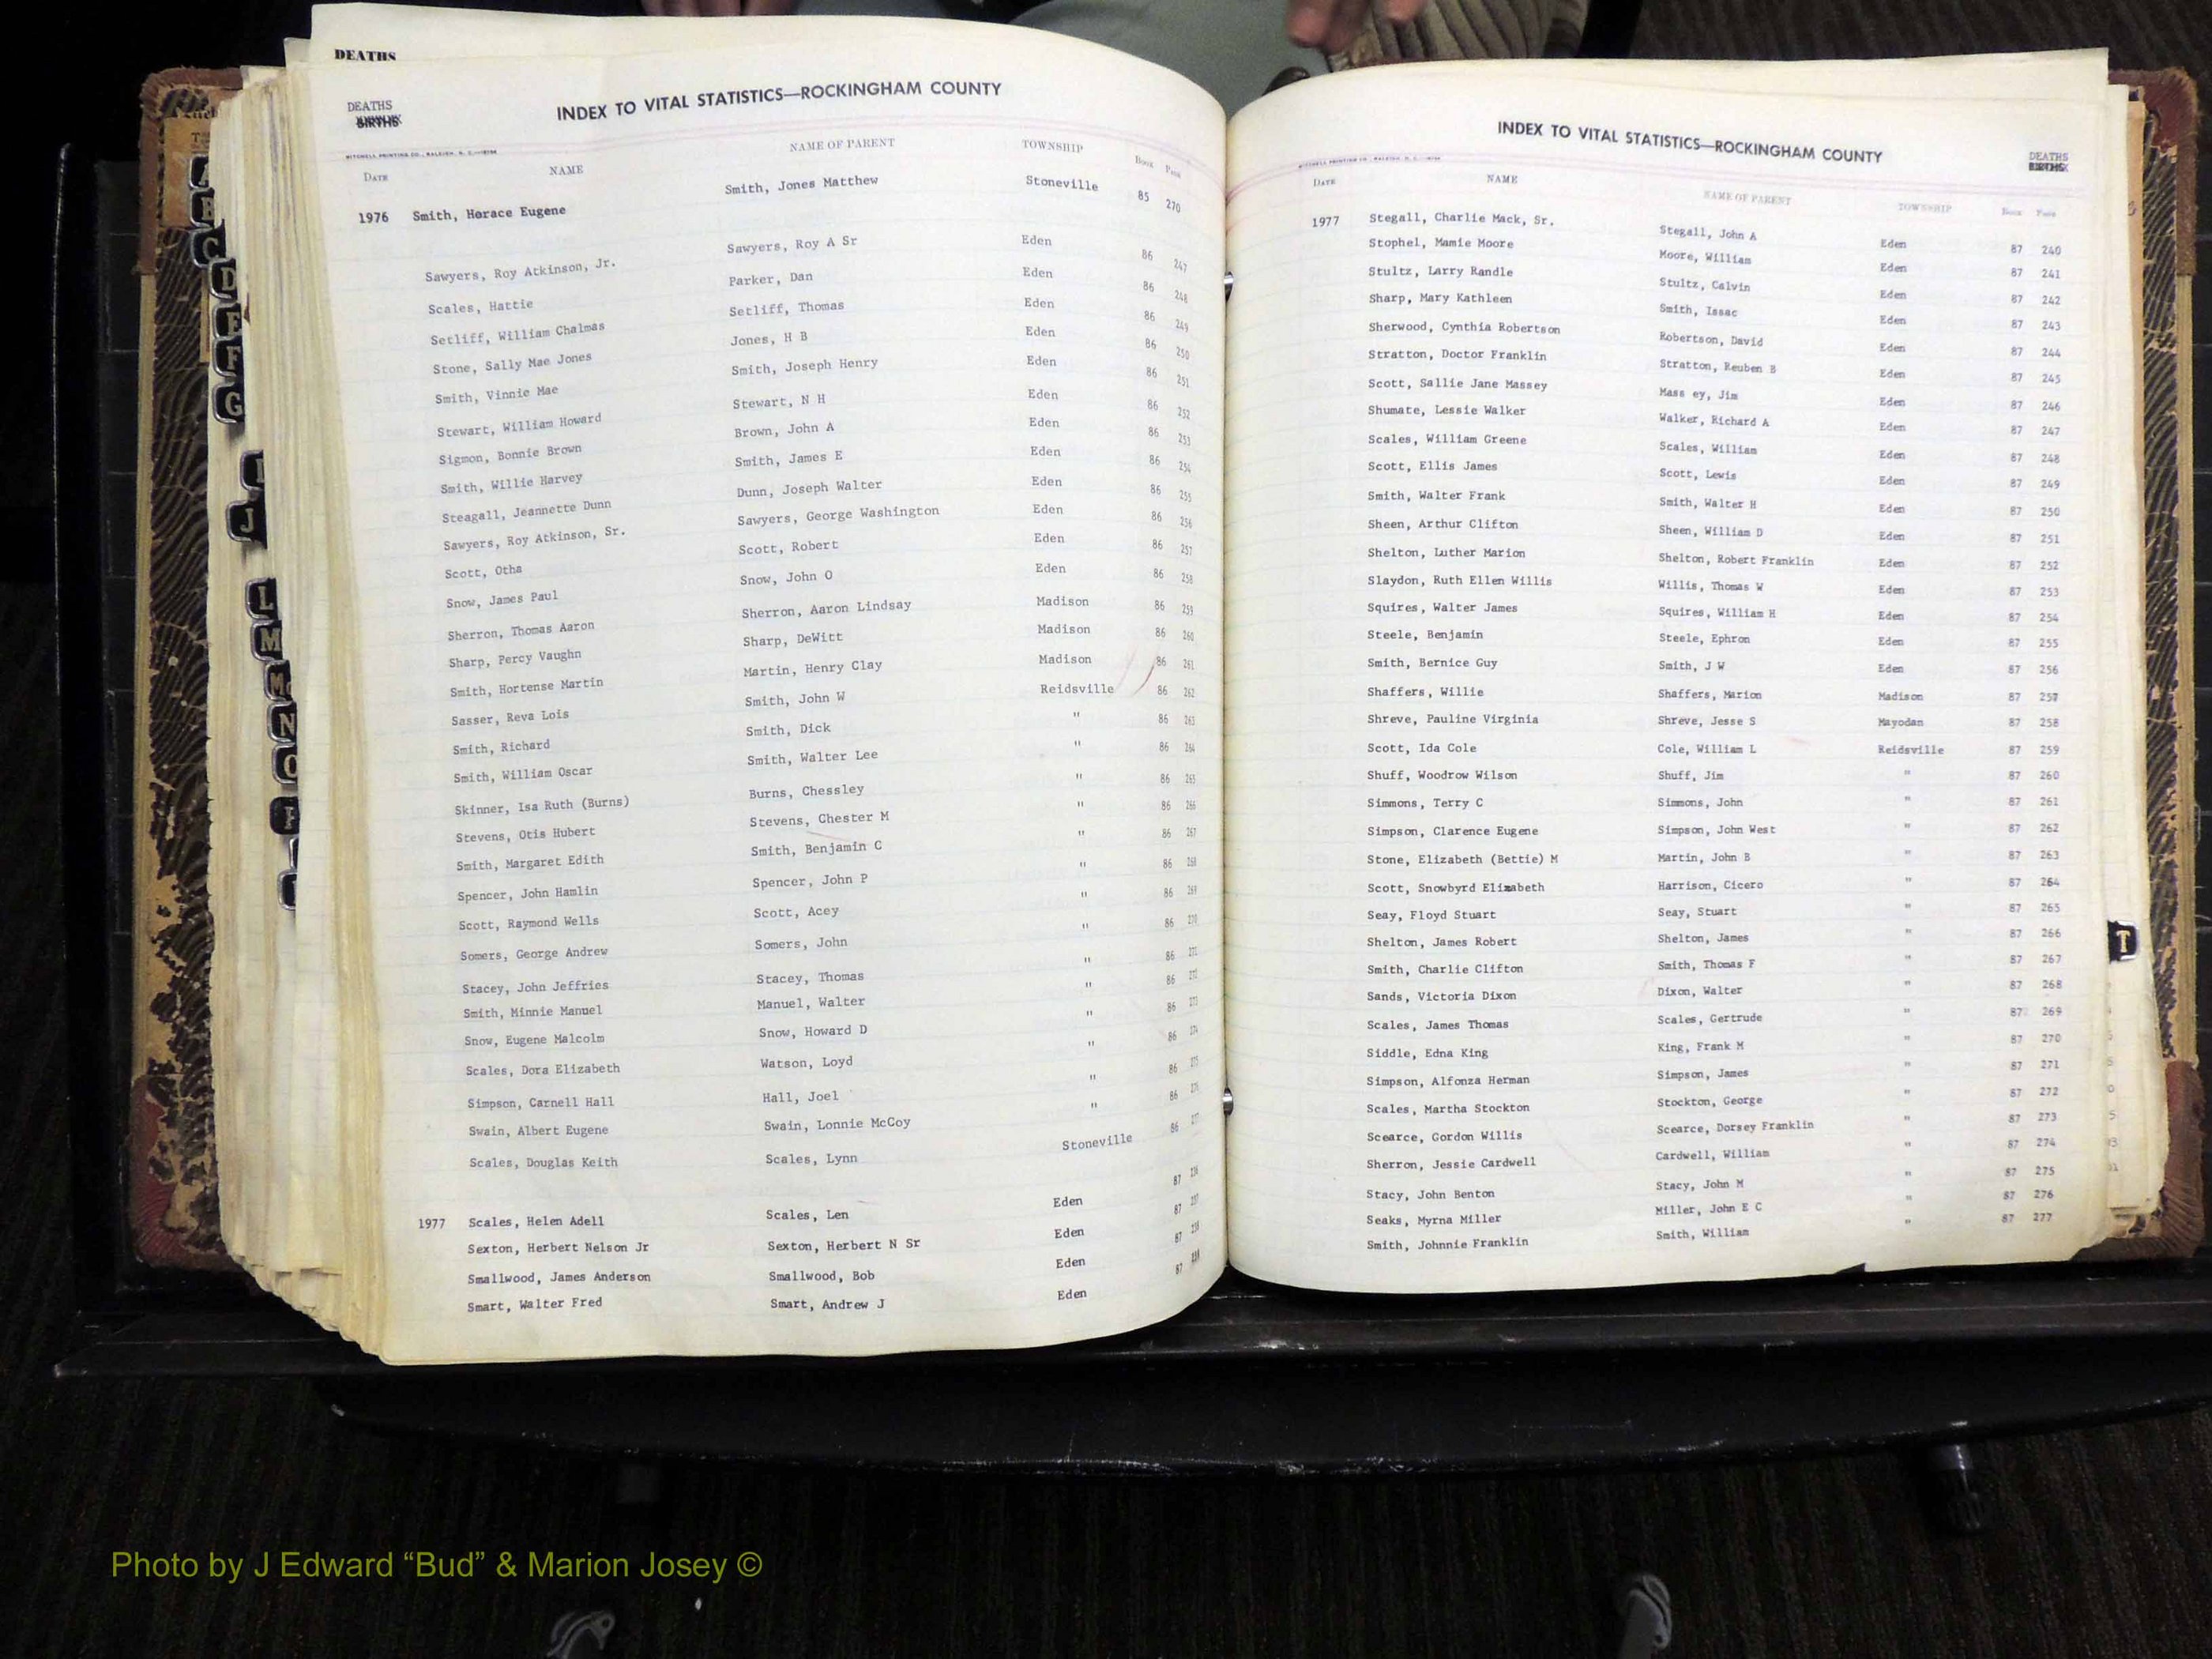 DEATHS
DEATHS
BIRTHS
INDEX TO VITAL STATISTICS—ROCKINGHAM COUNTY
MITCHELL PRINTING CO., RALEIGH, N. C.
DATE NAME NAME OF PARENT TOWNSHIP BOOK PAGE
1976 Smith, Horace Eugene Smith, Jones Matthew Stoneville 85 270
Sawyers, Roy Atkinson, Jr. Sawyers, Roy A Sr Eden 86 247
Scales, Hattie Parker, Dan Eden 86 248
Setliff, William Chalmas Setliff, Thomas Eden 86 249
Stone, Sally Mae Jones Jones, H B Eden 86 250
Smith, Vinnie Mae Smith, Joseph Henry Eden 86 251
Stewart, William Howard Stewart, N H Eden 86 252
Sigmon, Bonnie Brown Brown, John A Eden 86 253
Smith, Willie Harvey Smith, James E Eden 86 254
Steagall, Jeannette Dunn Dunn, Joseph Walter Eden 86 255
Sawyers, Roy Atkinson, Sr. Sawyers, George Washington Eden 86 256
Scott, Otha Scott, Robert Eden 86 257
Snow, James Paul Snow, John O Eden 86 258
Sherron, Thomas Aaron Sherron, Aaron Lindsay Madison 86 259
Sharp, Percy Vaughn Sharp, DeWitt Madison 86 260
Smith, Hortense Martin Martin, Henry Clay Madison 86 261
Sasser, Reva Lois Smith, John W Reidsville 86 262
Smith, Richard Smith, Dick " 86 263
Smith, William Oscar Smith, Walter Lee " 86 264
Skinner, Isa Ruth (Burns) Burns, Chessley " 86 265
Stevens, Otis Hubert Stevens, Chester M " 86 266
Smith, Margaret Edith Smith, Benjamin C " 86 267
Spencer, John Hamlin Spencer, John P " 86 268
Scott, Raymond Wells Scott, Acey " 86 269
Somers, George Andrew Somers, John " 86 270
Stacey, John Jeffries Stacey, Thomas " 86 271
Smith, Minnie Manuel Manuel, Walter " 86 272
Snow, Eugene Malcolm Snow, Howard D " 86 273
Scales, Dora Elizabeth Watson, Loyd " 86 274
Simpson, Carnell Hall Hall, Joel " 86 275
Swain, Albert Eugene Swain, Lonnie McCoy " 86 276
Scales, Douglas Keith Scales, Lynn Stoneville 86 277
1977 Scales, Helen Adell Scales, Len Eden 87 236
Sexton, Herbert Nelson Jr Sexton, Herbert N Sr Eden 87 237
Smallwood, James Anderson Smallwood, Bob Eden 87 238
Smart, Walter Fred Smart, Andrew J Eden 87
INDEX TO VITAL STATISTICS—ROCKINGHAM COUNTY
DEATHS
BIRTHS
DATE NAME NAME OF PARENT TOWNSHIP BOOK PAGE
1977 Stegall, Charlie Mack, Sr. Stegall, John A Eden 87 240
Stophel, Mamie Moore Moore, William Eden 87 241
Stultz, Larry Randle Stultz, Calvin Eden 87 242
Sharp, Mary Kathleen Smith, Issac Eden 87 243
Sherwood, Cynthia Robertson Robertson, David Eden 87 244
Stratton, Doctor Franklin Stratton, Reuben B Eden 87 245
Scott, Sallie Jane Massey Mass ey, Jim Eden 87 246
Shumate, Lessie Walker Walker, Richard A Eden 87 247
Scales, William Greene Scales, William Eden 87 248
Scott, Ellis James Scott, Lewis Eden 87 249
Smith, Walter Frank Smith, Walter H Eden 87 250
Sheen, Arthur Clifton Sheen, William D Eden 87 251
Shelton, Luther Marion Shelton, Robert Franklin Eden 87 252
Slaydon, Ruth Ellen Willis Willis, Thomas W Eden 87 253
Squires, Walter James Squires, William H Eden 87 254
Steele, Benjamin Steele, Ephron Eden 87 255
Smith, Bernice Guy Smith, J W Eden 87 256
Shaffers, Willie Shaffers, Marion Madison 87 257
Shreve, Pauline Virginia Shreve, Jesse S Mayodan 87 258
Scott, Ida Cole Cole, William L Reidsville 87 259
Shuff, Woodrow Wilson Shuff, Jim " 87 260
Simmons, Terry C Simmons, John " 87 261
Simpson, Clarence Eugene Simpson, John West " 87 262
Stone, Elizabeth (Bettie) M Martin, John B " 87 263
Scott, Snowbyrd Elizabeth Harrison, Cicero " 87 264
Seay, Floyd Stuart Seay, Stuart " 87 265
Shelton, James Robert Shelton, James " 87 266
Smith, Charlie Clifton Smith, Thomas F " 87 267
Sands, Victoria Dixon Dixon, Walter " 87 268
Scales, James Thomas Scales, Gertrude " 87 269
Siddle, Edna King King, Frank M " 87 270
Simpson, Alfonza Herman Simpson, James " 87 271
Scales, Martha Stockton Stockton, George " 87 272
Scearce, Gordon Willis Scearce, Dorsey Franklin " 87 273
Sherron, Jessie Cardwell Cardwell, William " 87 274
Stacy, John Benton Stacy, John M " 87 275
Seaks, Myrna Miller Miller, John E C " 87 276
Smith, Johnnie Franklin Smith, William " 87 277
A
B
C
D
E
F
G
I
J
L
M
Mc
N
O
P
T
Photo by J Edward “Bud” & Marion Josey ©